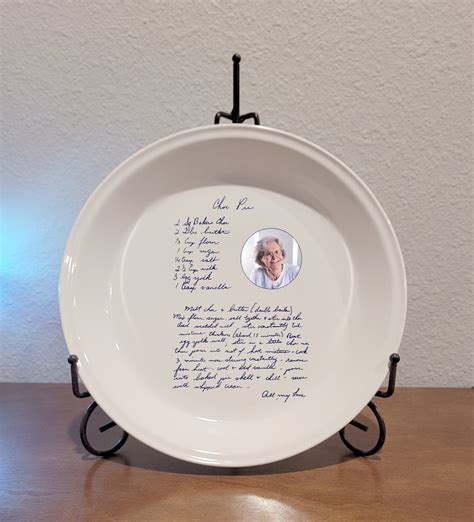 Choc Pie
2 Sq Bakers Choc
2 Tbls butter
⅓ Cup flour
1 Cup sugar
¼ tsp salt
2 ½ Cup milk
3 egg yolk
1 teasp vanilla
Melt Choc & butter (double boiler)
Mix flour, sugar, salt together & stir into the
Add milk, stir constantly til
mixture thickens (about 15 minutes) Beat
egg yolk well, stir in a little choc mix
then pour into rest of hot mixture - cook
3 minutes more stirring constantly - remove
from heat - cool & add vanilla - pour
into baked pie shell & chill - serve
with whipped cream.
All my love